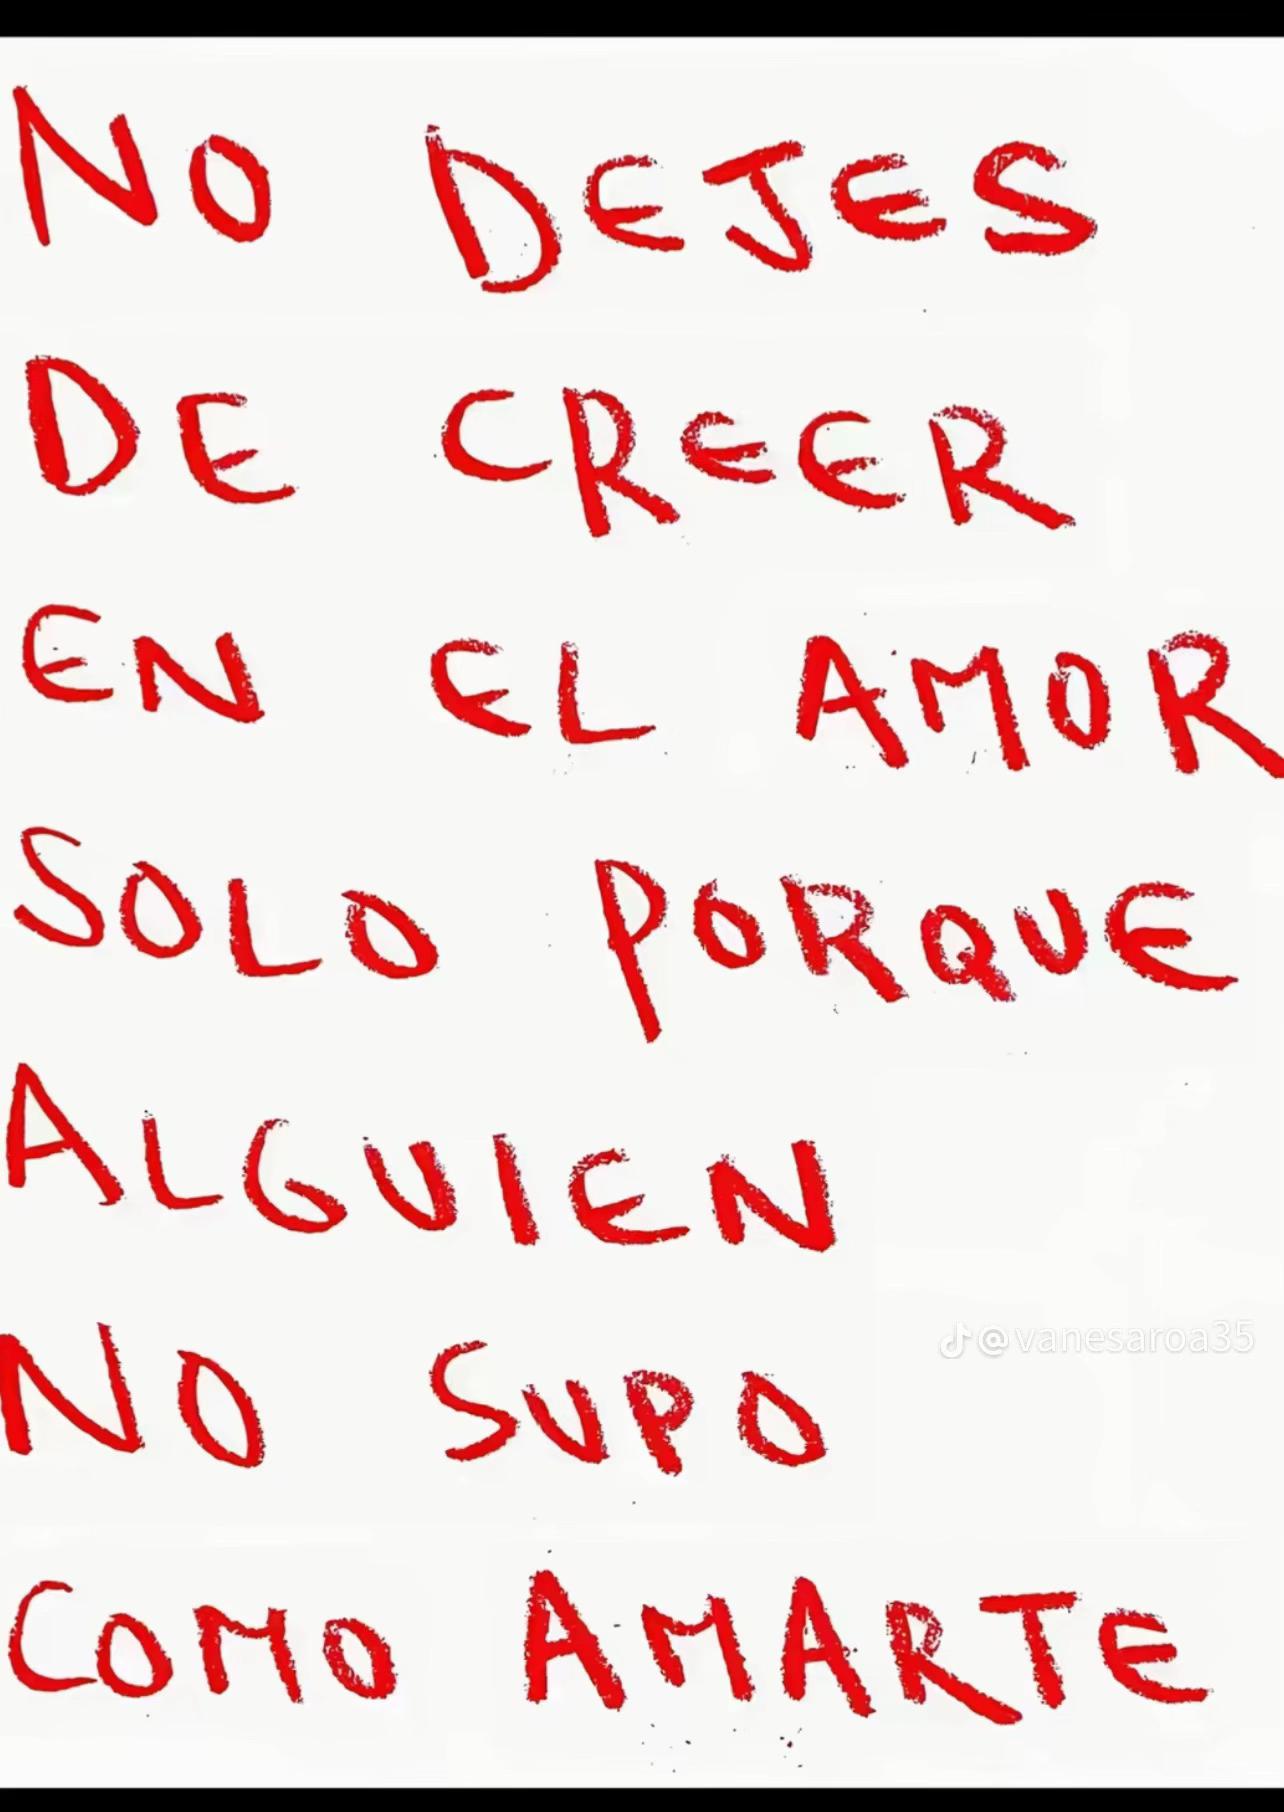 NO DEJES
DE CREER
EN EL AMOR
SOLO PORQUE
ALGUIEN
NO SUPO
COMO AMARTE
@vanesaroa35